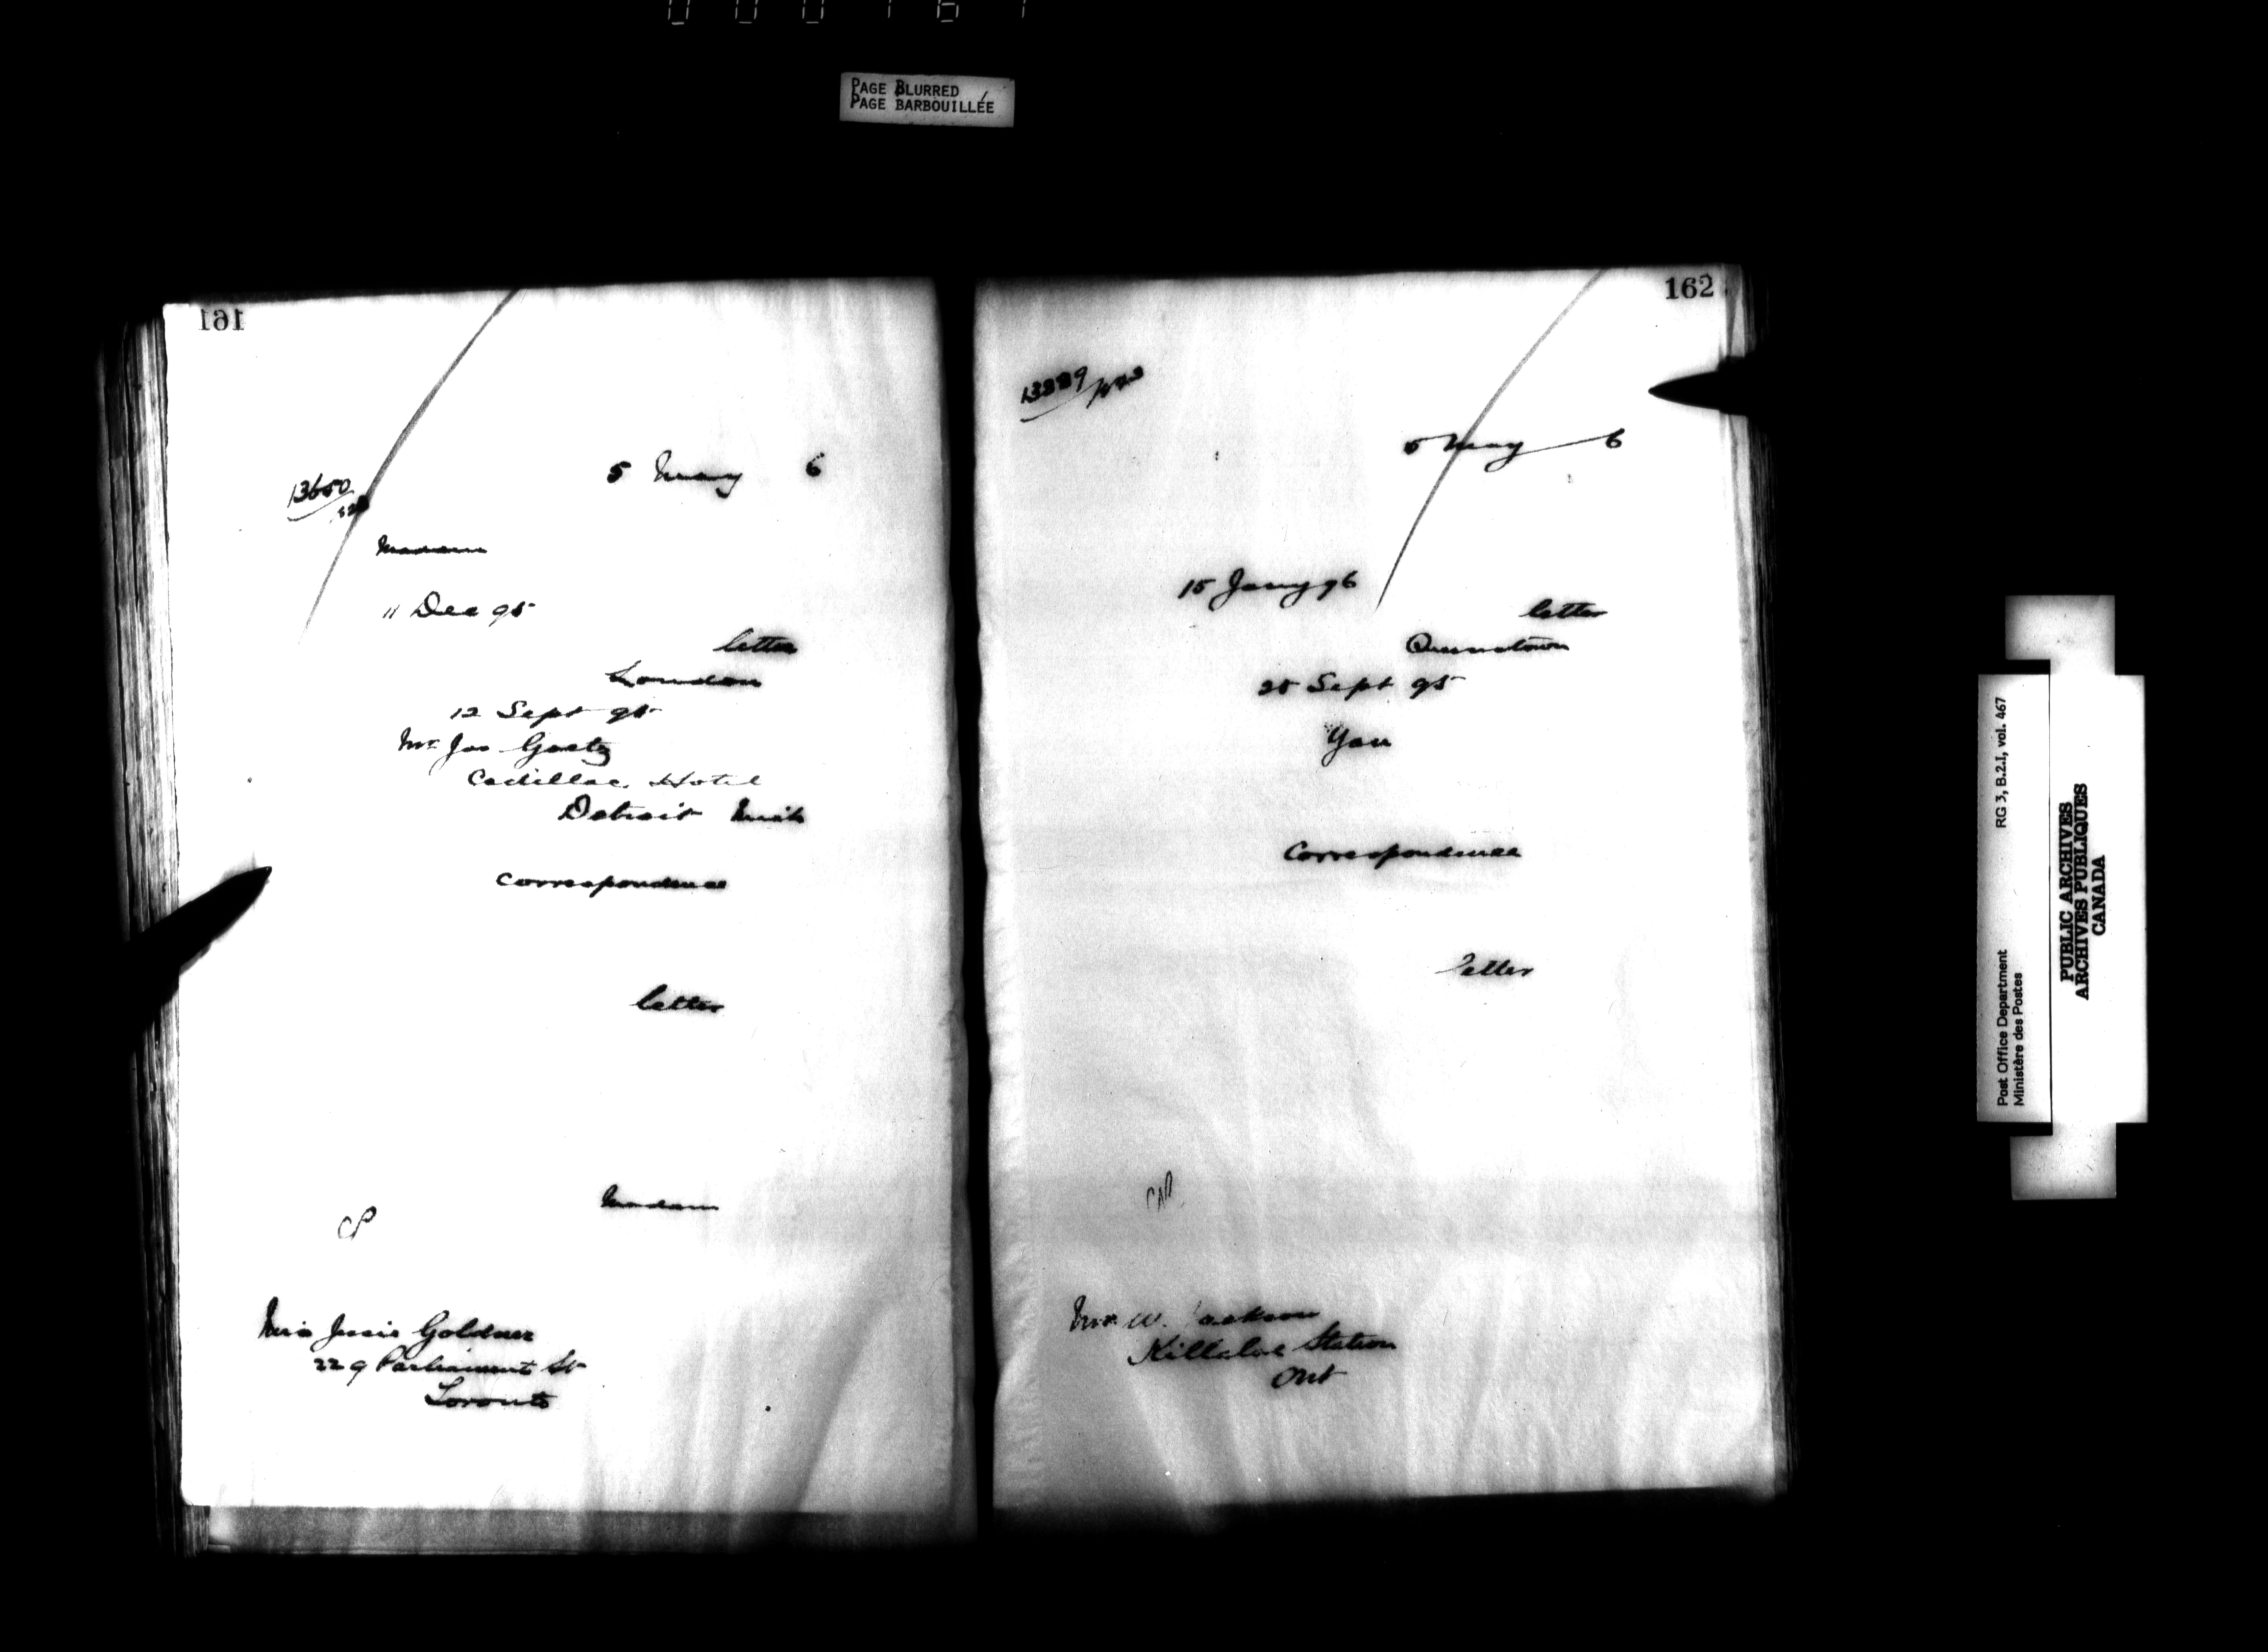 PAGE BLURRED
PAGE BARBOUILLÉE
161
13650
5 May 6
Madam
11 Dec 95
letter
London
12 Sept 95
Mr Jos Goetz
Cadillac Hotel
Detroit Mich
Correspondence
letter
Madam
CP
Miss Jessie Goldner
229 Parliament St
Toronto
162
13889
5 May 6
15 Jany 96
letter
Queenstown
25 Sept 95
You
Correspondence
letter
Mr W. Jackson
Killaloe Station
Ont
Post Office Department
Ministère des Postes
RG 3, B.2.I, vol. 467
PUBLIC ARCHIVES
ARCHIVES PUBLIQUES
CANADA